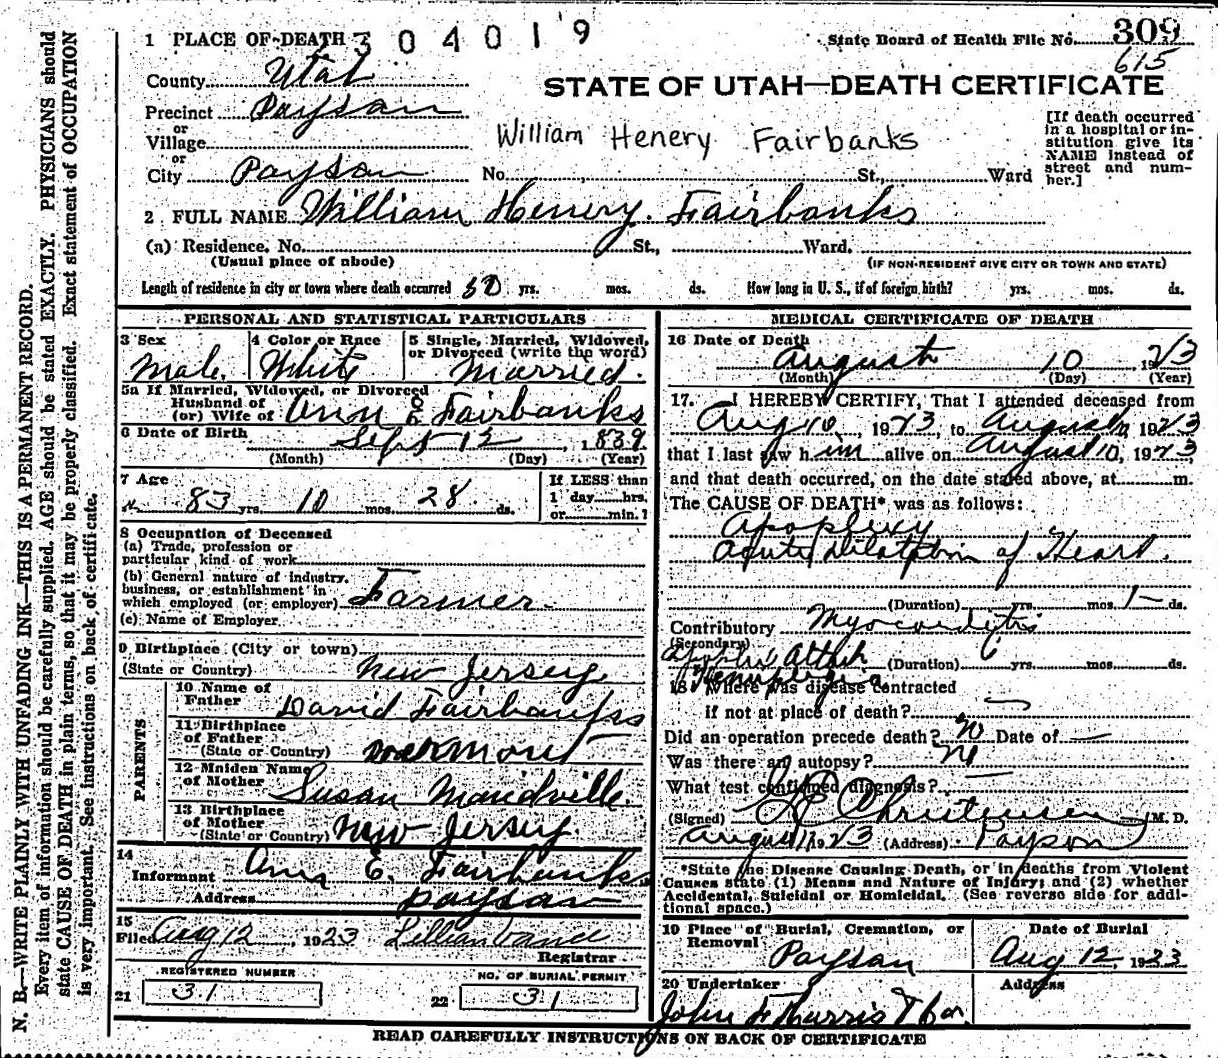 N. B.—WRITE PLAINLY WITH UNFADING INK—THIS IS A PERMANENT RECORD.
Every item of information should be carefully supplied. AGE should be stated EXACTLY. PHYSICIANS should
state CAUSE OF DEATH in plain terms, so that it may be properly classified. Exact statement of OCCUPATION
is very important. See instructions on back of certificate.
304019
1 PLACE OF DEATH
State Board of Health File No. 309
615
County Utah
STATE OF UTAH—DEATH CERTIFICATE
Precinct Payson
or
Village
William Henery Fairbanks
[If death occurred
in a hospital or in-
stitution give its
NAME instead of
street and num-
ber.]
or
City Payson No. St., Ward
2 FULL NAME William Henery Fairbanks
(a) Residence. No. St., Ward.
(Usual place of abode)
(IF NON-RESIDENT GIVE CITY OR TOWN AND STATE)
Length of residence in city or town where death occurred 50 yrs. mos. ds. How long in U. S., if of foreign birth? yrs. mos. ds.
PERSONAL AND STATISTICAL PARTICULARS
3 Sex
Male
4 Color or Race
White
5 Single, Married, Widowed,
or Divorced (write the word)
Married.
5a If Married, Widowed, or Divorced
Husband of
(or) Wife of Ann E Fairbanks
6 Date of Birth Sept 12, 1839
(Month) (Day) (Year)
7 Age
83 yrs. 10 mos. 28 ds.
If LESS than
1 day hrs.
or min.?
8 Occupation of Deceased
(a) Trade, profession or
particular kind of work
(b) General nature of industry,
business, or establishment in
which employed (or employer) Farmer
(c) Name of Employer
9 Birthplace (City or town)
(State or Country) New Jersey
PARENTS
10 Name of
Father David Fairbanks
11 Birthplace
of Father
(State or Country)
12 Maiden Name
of Mother Susan Mandville
13 Birthplace
of Mother
(State or Country) New Jersey.
14
Informant Ann E. Fairbanks
Address Payson
15
Filed Aug 12, 1923 Lillian Vance
Registrar
REGISTERED NUMBER
21 31
NO. OF BURIAL PERMIT
22 31
MEDICAL CERTIFICATE OF DEATH
16 Date of Death
August 10, 1923
(Month) (Day) (Year)
17. I HEREBY CERTIFY, That I attended deceased from
Aug 10, 1923, to August 10, 1923
that I last saw h im alive on August 10, 1923,
and that death occurred, on the date stated above, at m.
The CAUSE OF DEATH* was as follows:
Apoplexy
Acute Dilatation of Heart.
(Duration) yrs. mos. 1 ds.
Contributory Myocarditis
(Secondary)
Attack (Duration) yrs. mos. ds.
Hemiplegia
18 Where was disease contracted
if not at place of death?
Did an operation precede death? no Date of —
Was there an autopsy? no
What test confirmed diagnosis?
(Signed) Christensen, M. D.
August 11, 1923 (Address) Payson
*State the Disease Causing Death, or in deaths from Violent
Causes state (1) Means and Nature of Injury; and (2) whether
Accidental, Suicidal or Homicidal. (See reverse side for addi-
tional space.)
19 Place of Burial, Cremation, or
Removal
Payson
Date of Burial
Aug 12, 1923
20 Undertaker
John F Harris
Address
READ CAREFULLY INSTRUCTIONS ON BACK OF CERTIFICATE